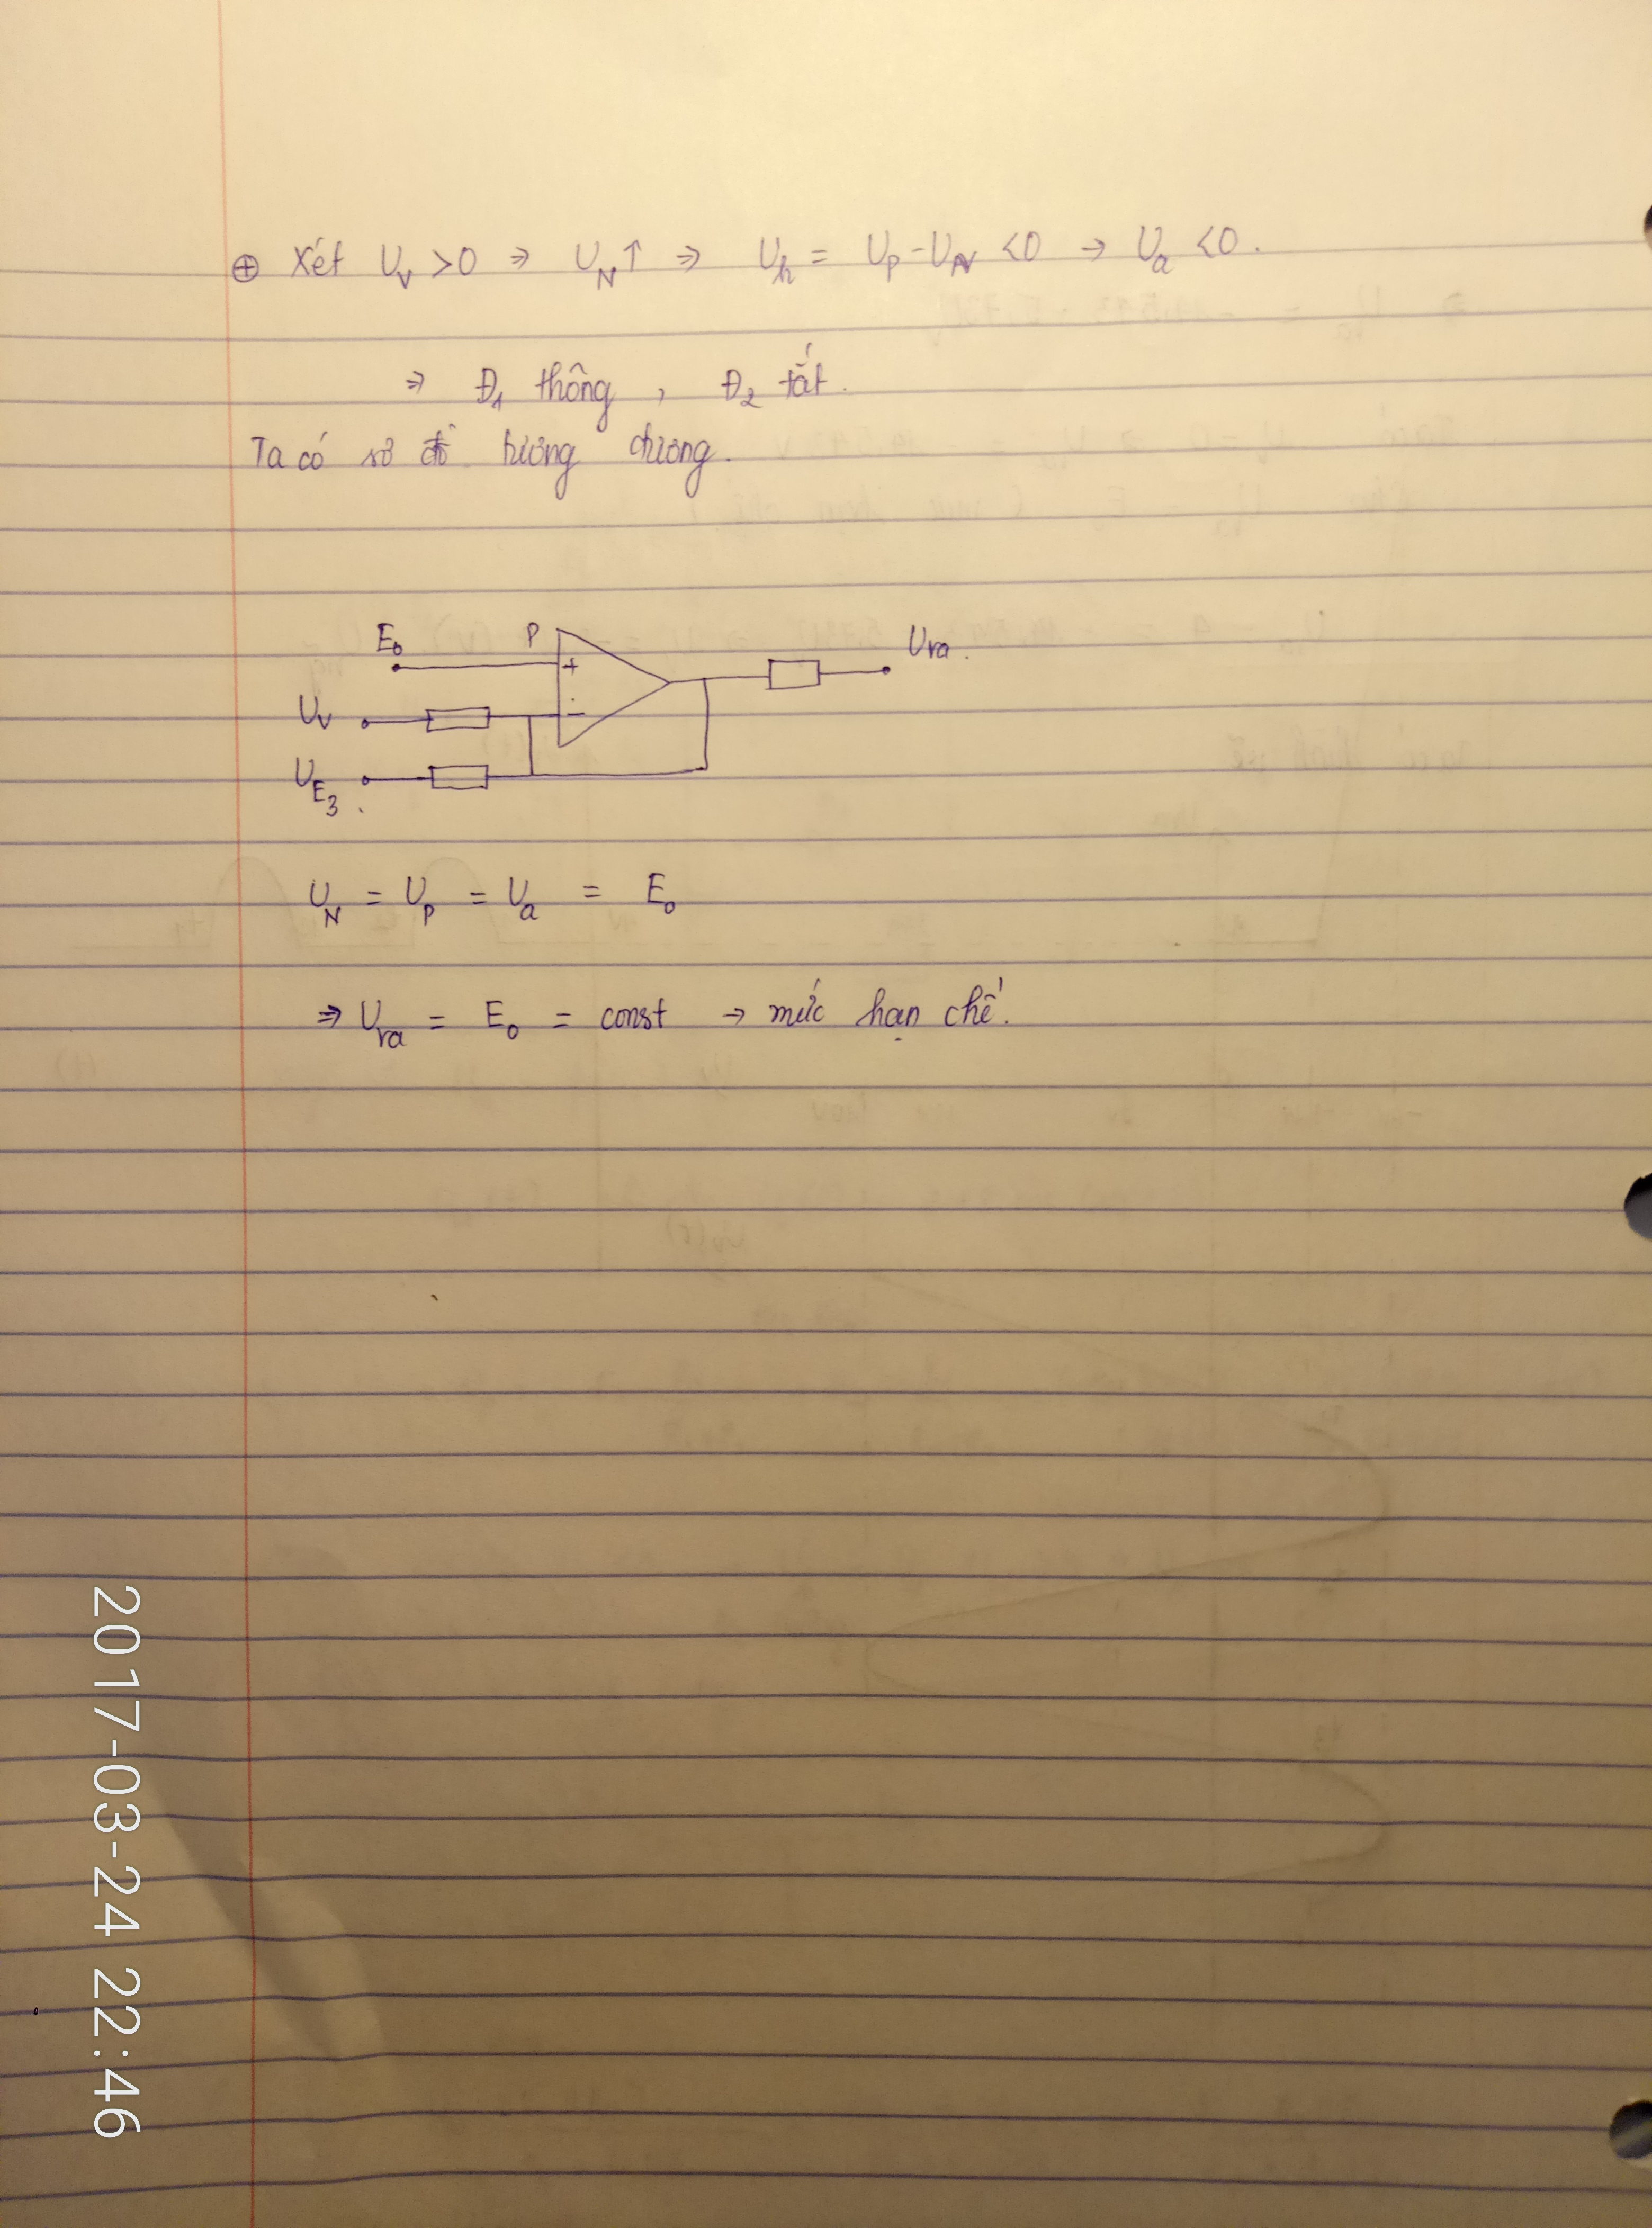 ⊕ Xét U_v > 0 ⇒ U_N ↑ ⇒ U_h = U_p - U_N < 0 → U_a < 0.
⇒ Đ_1 thông , Đ_2 tắt.
Ta có sơ đồ tương đương.
E_0 P + U_ra.
U_v -
U_E3.
U_N = U_p = U_a = E_0
⇒ U_ra = E_0 = const → mức hạn chế.
2017-03-24 22:46